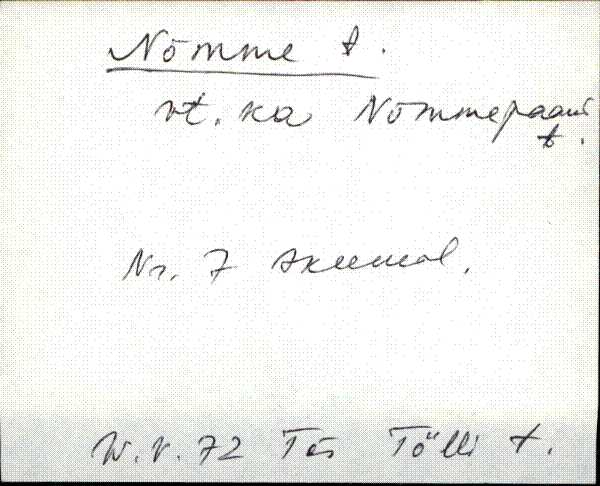 Nõmme t.
vt. ka Nõmmepaani
t.
Nr. 7 skeemal.
W. V. 72 Tõs Tõlli t.